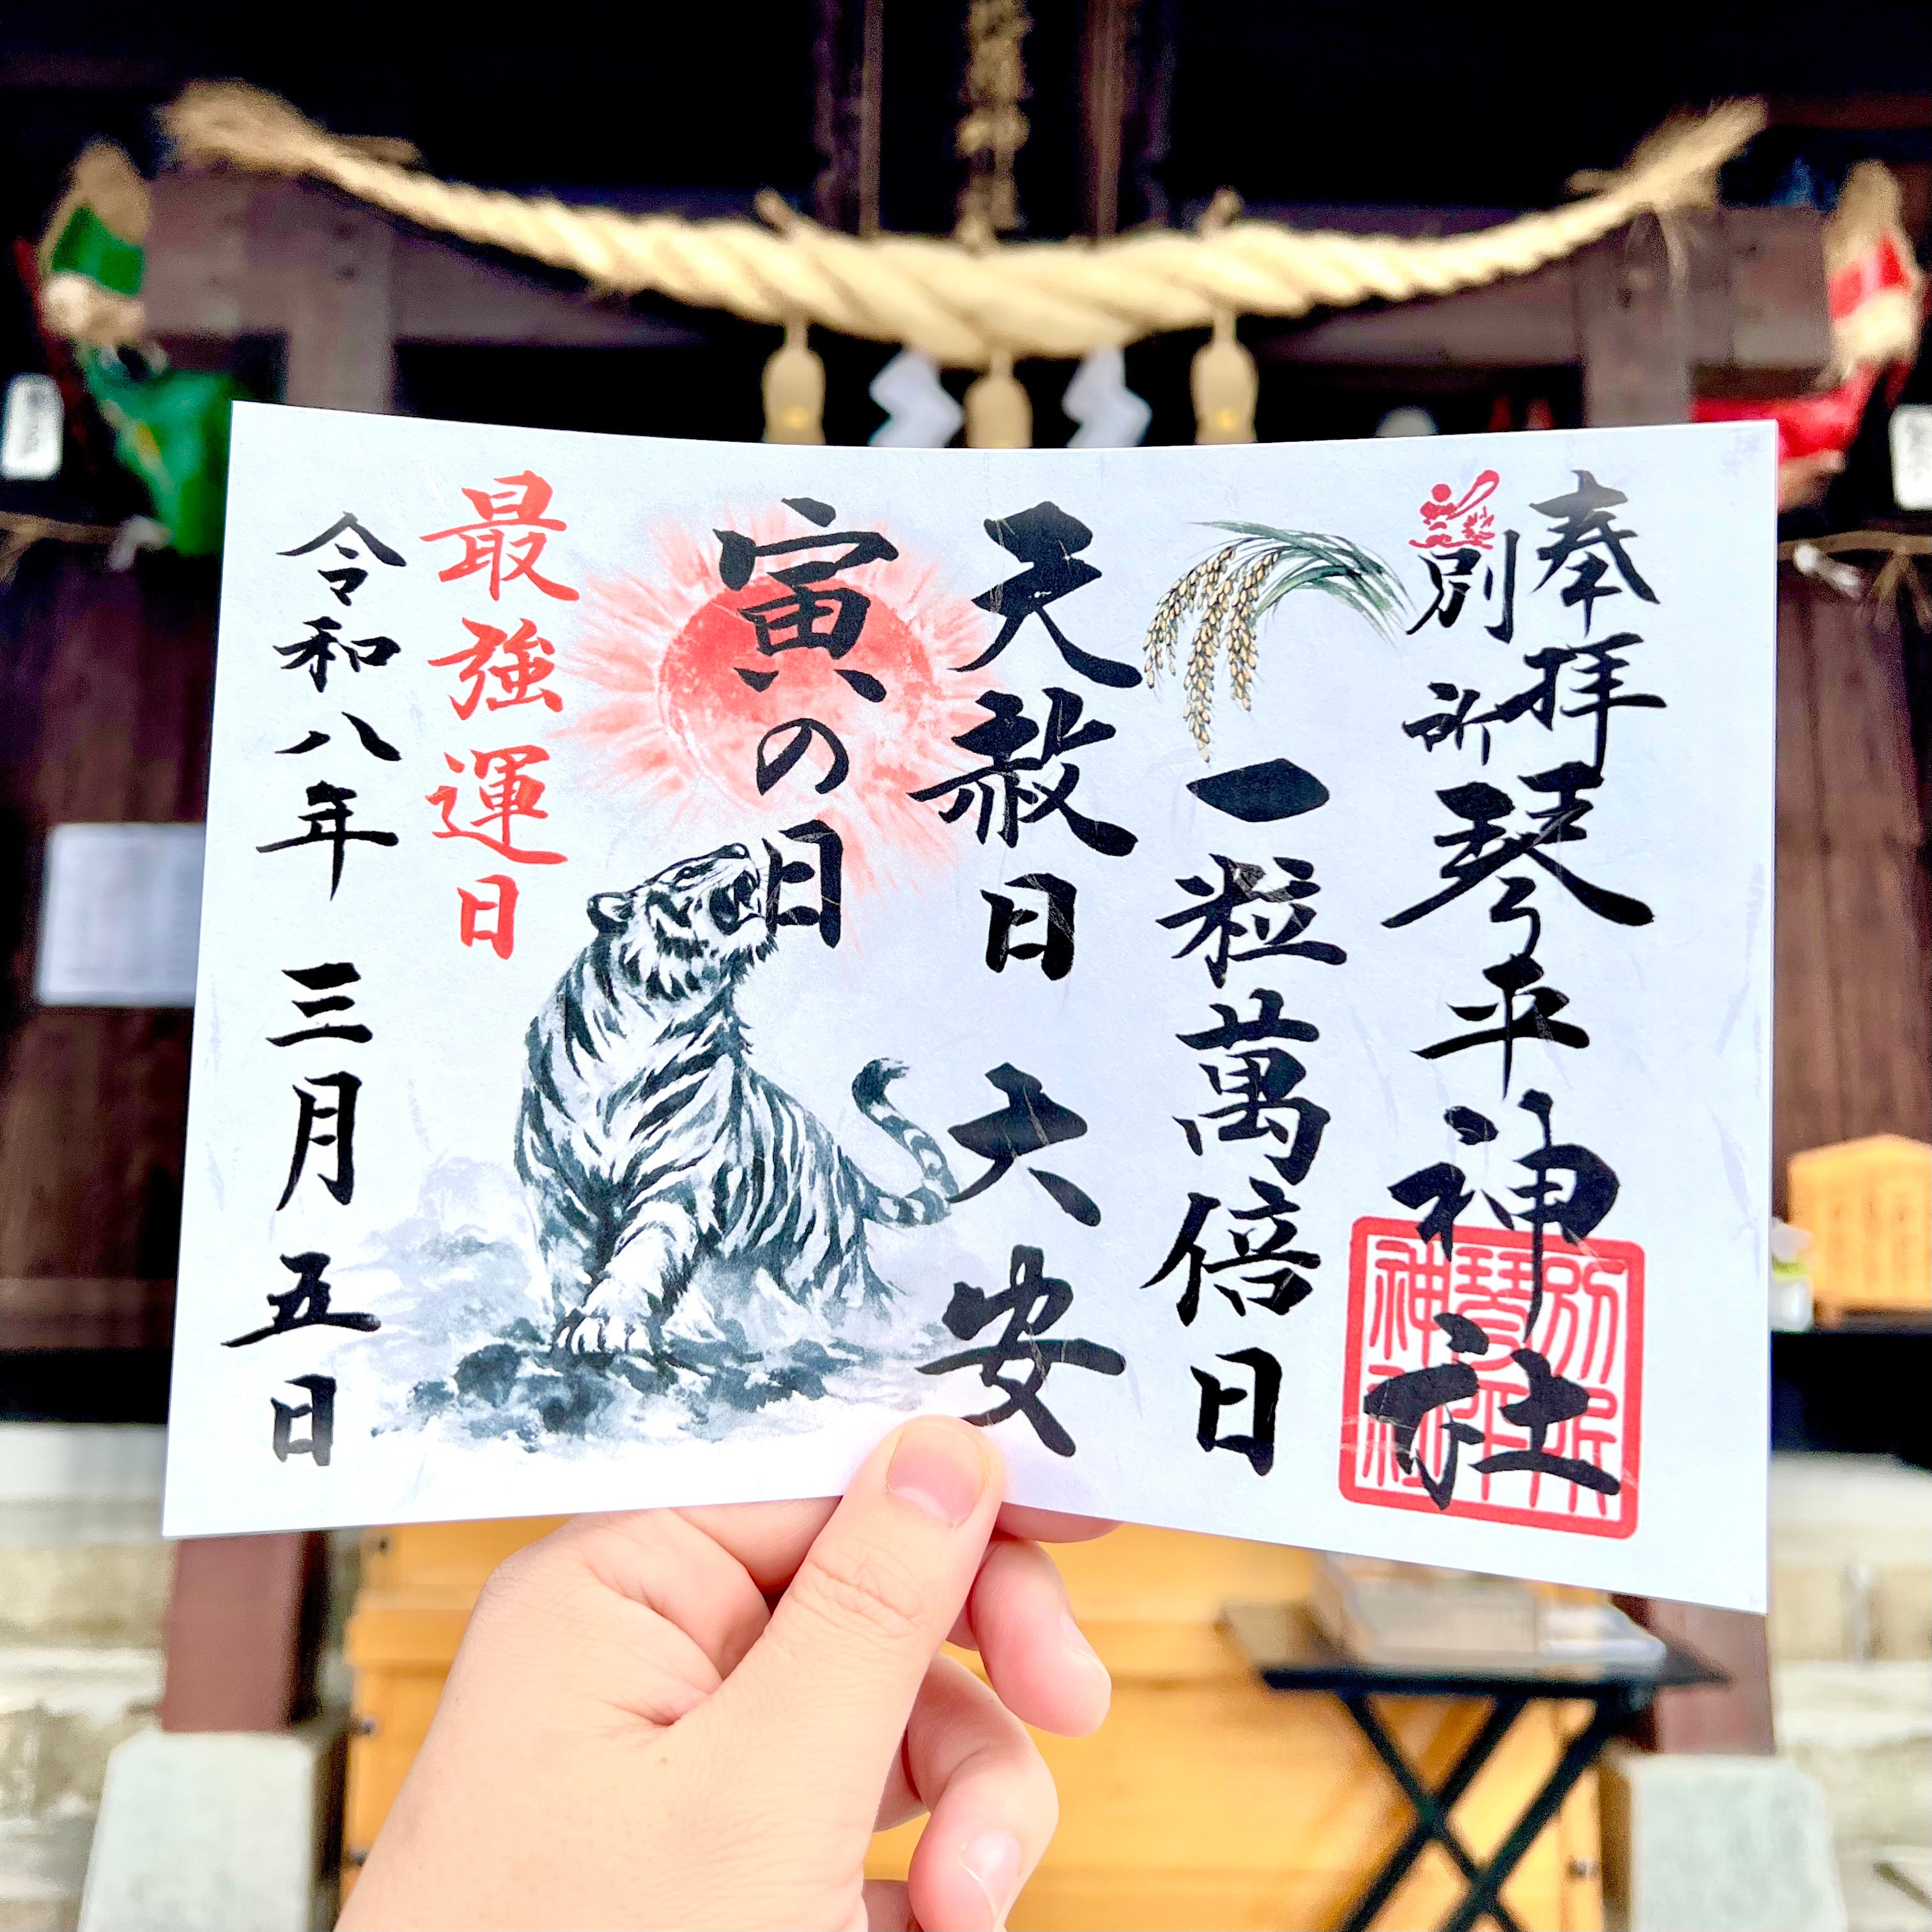 奉拝
別所琴平神社
一粒萬倍日
天赦日 大安
寅の日
最強運日
令和八年 三月 五日
別所
琴平
神社